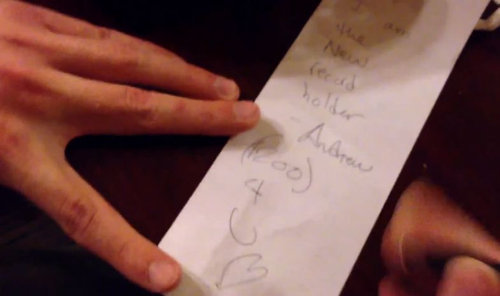 I am
the
New
recod
holder
- Andrew
(1200)
4